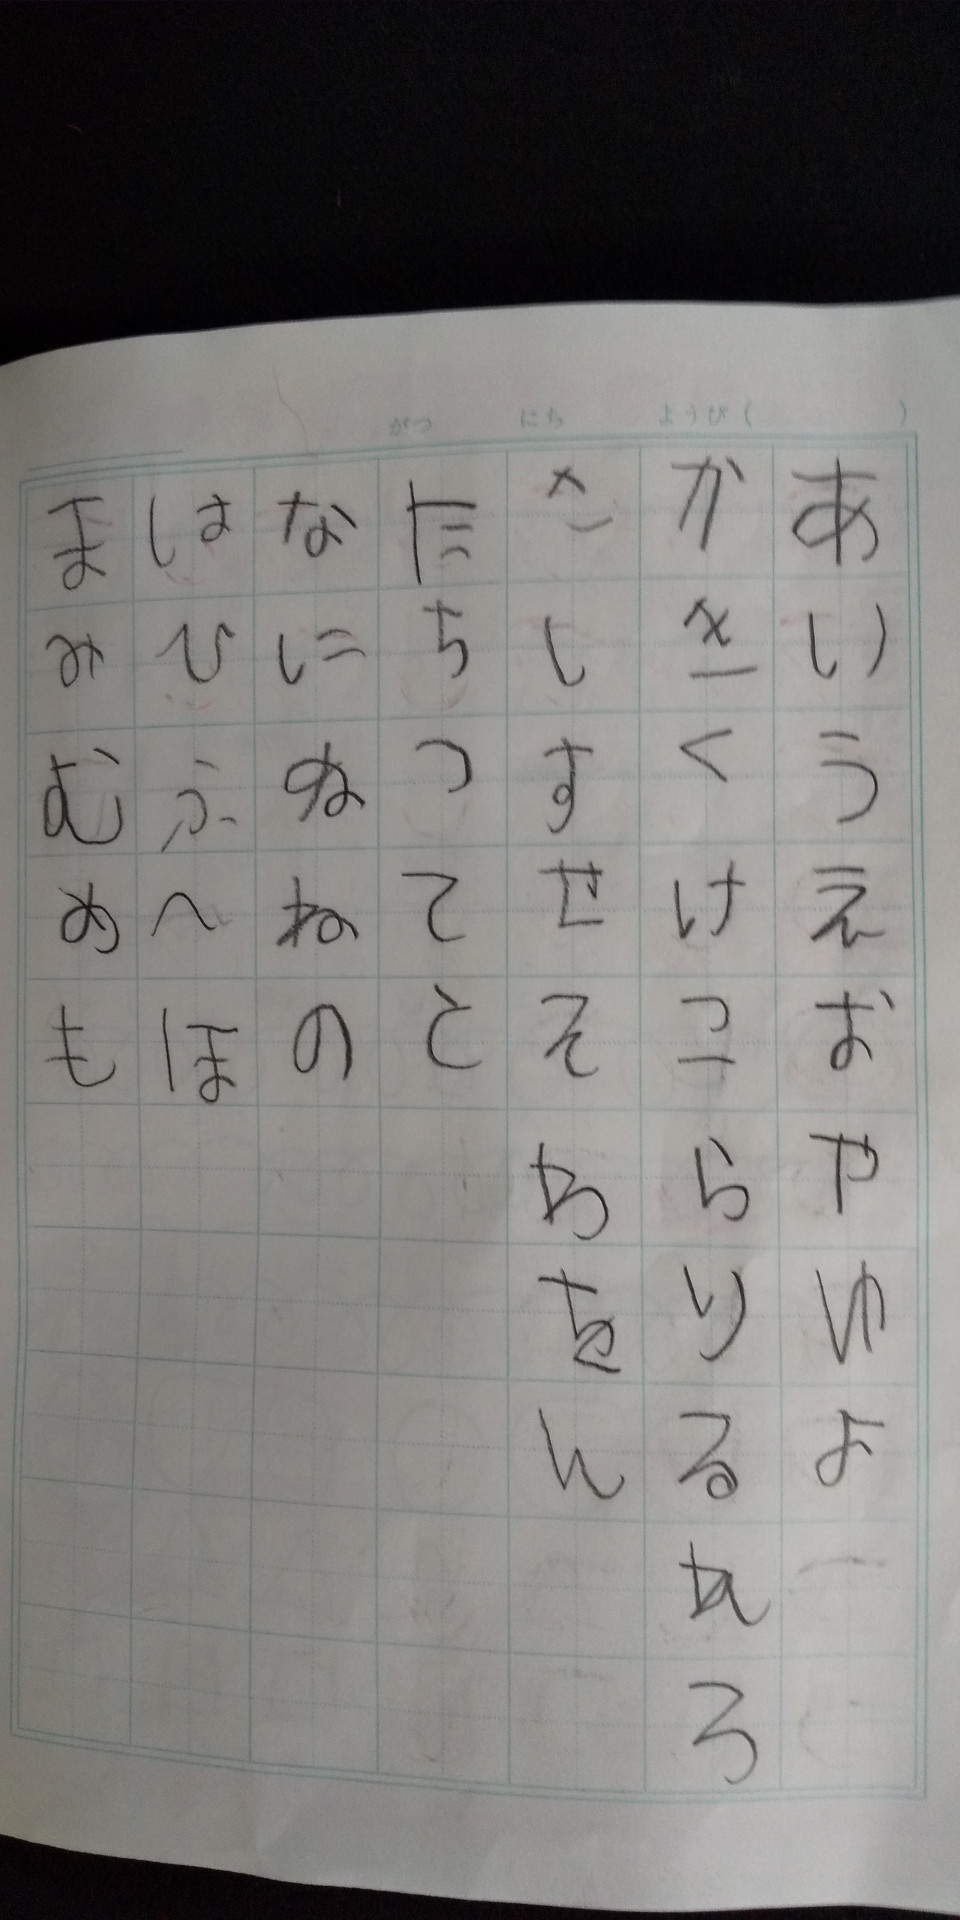 がつ にち ようび( )
あいうえおやゆよ
かきくけこらりるれろ
さしすせそわをん
たちつてと
なにぬねの
はひふへほ
まみむめも